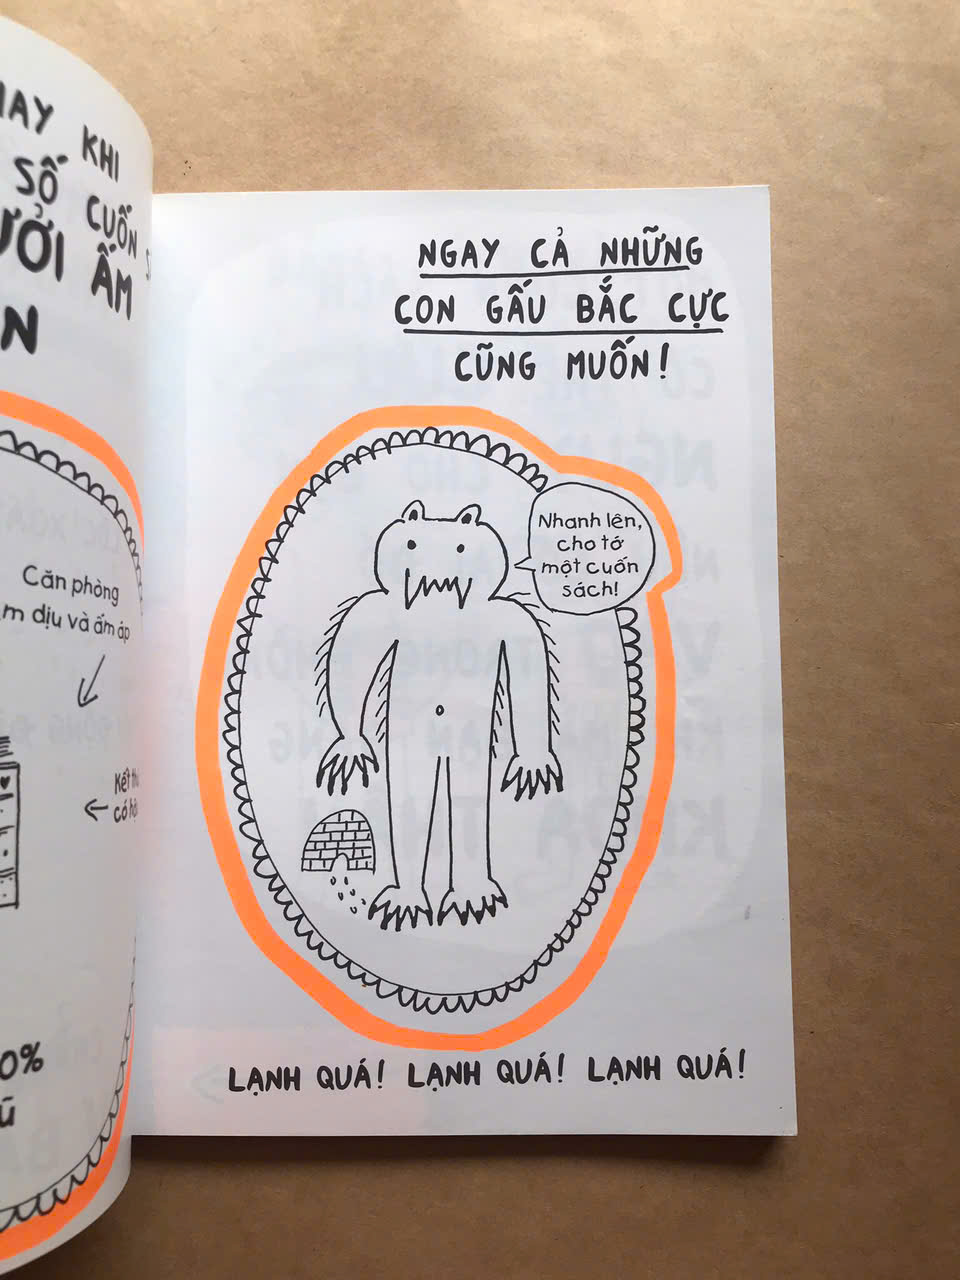 MAY KHI
SỐ CUỐN
ƯỞI ẤM
Căn phòng
dịu và ấm áp
Kết
có
0%
NGAY CẢ NHỮNG
CON GẤU BẮC CỰC
CŨNG MUỐN!
Nhanh lên,
cho tớ
một cuốn
sách!
LẠNH QUÁ! LẠNH QUÁ! LẠNH QUÁ!